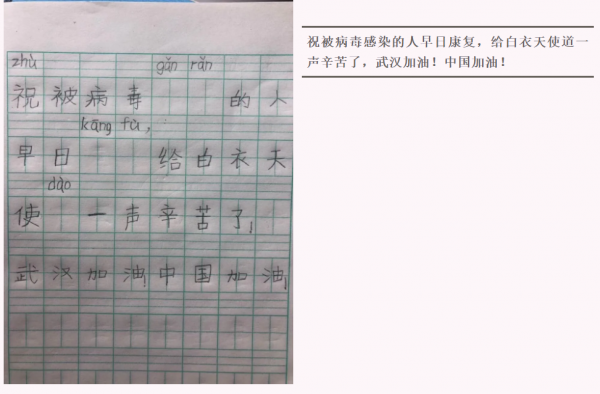 zhù gǎn rǎn
祝被病毒 的人
kāng fù,
早日 给白衣天
dào
使 一声辛苦了,
武汉加油!中国加油!
祝被病毒感染的人早日康复，给白衣天使道一
声辛苦了，武汉加油！中国加油！